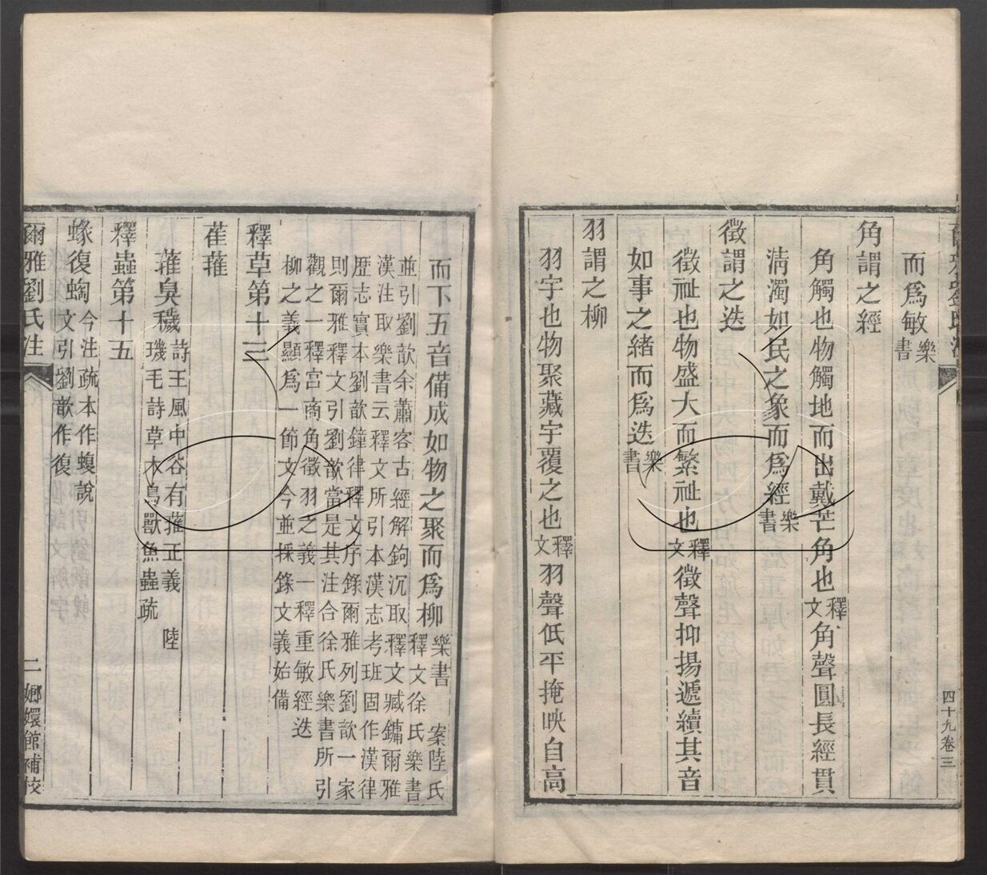 四十九卷三
而爲敏樂書
角謂之經
角觸也物觸地而出戴芒角也釋文角聲圓長經貫
淸濁如民之象而爲經樂書
徵謂之迭
徵祉也物盛大而繁祉也釋文徵聲抑揚遞續其音
如事之緒而爲迭樂書
羽謂之柳
羽宇也物聚藏宇覆之也釋文羽聲低平掩映自高
而下五音備成如物之聚而爲柳樂書 案陸氏
釋文徐氏樂書
並引劉歆余蕭客古經解鉤沉取釋文臧鏞爾雅
漢注取樂書云釋文所引本漢志考班固作漢律
歷志實本劉歆鐘律釋文序錄爾雅列劉歆一家
則爾雅釋文引劉歆當是其注合徐氏樂書所引
觀之一釋宮商角徵羽之義一釋重敏經迭
柳之義顯爲一節文今並採錄文義始備
釋草第十三
萑蓷
蓷臭穢詩王風中谷有蓷正義 陸
璣毛詩草木鳥獸魚蟲疏
釋蟲第十五
蝝復蜪今注疏本作蝮說
文引劉歆作復
爾雅劉氏注
二 嫏嬛館補校